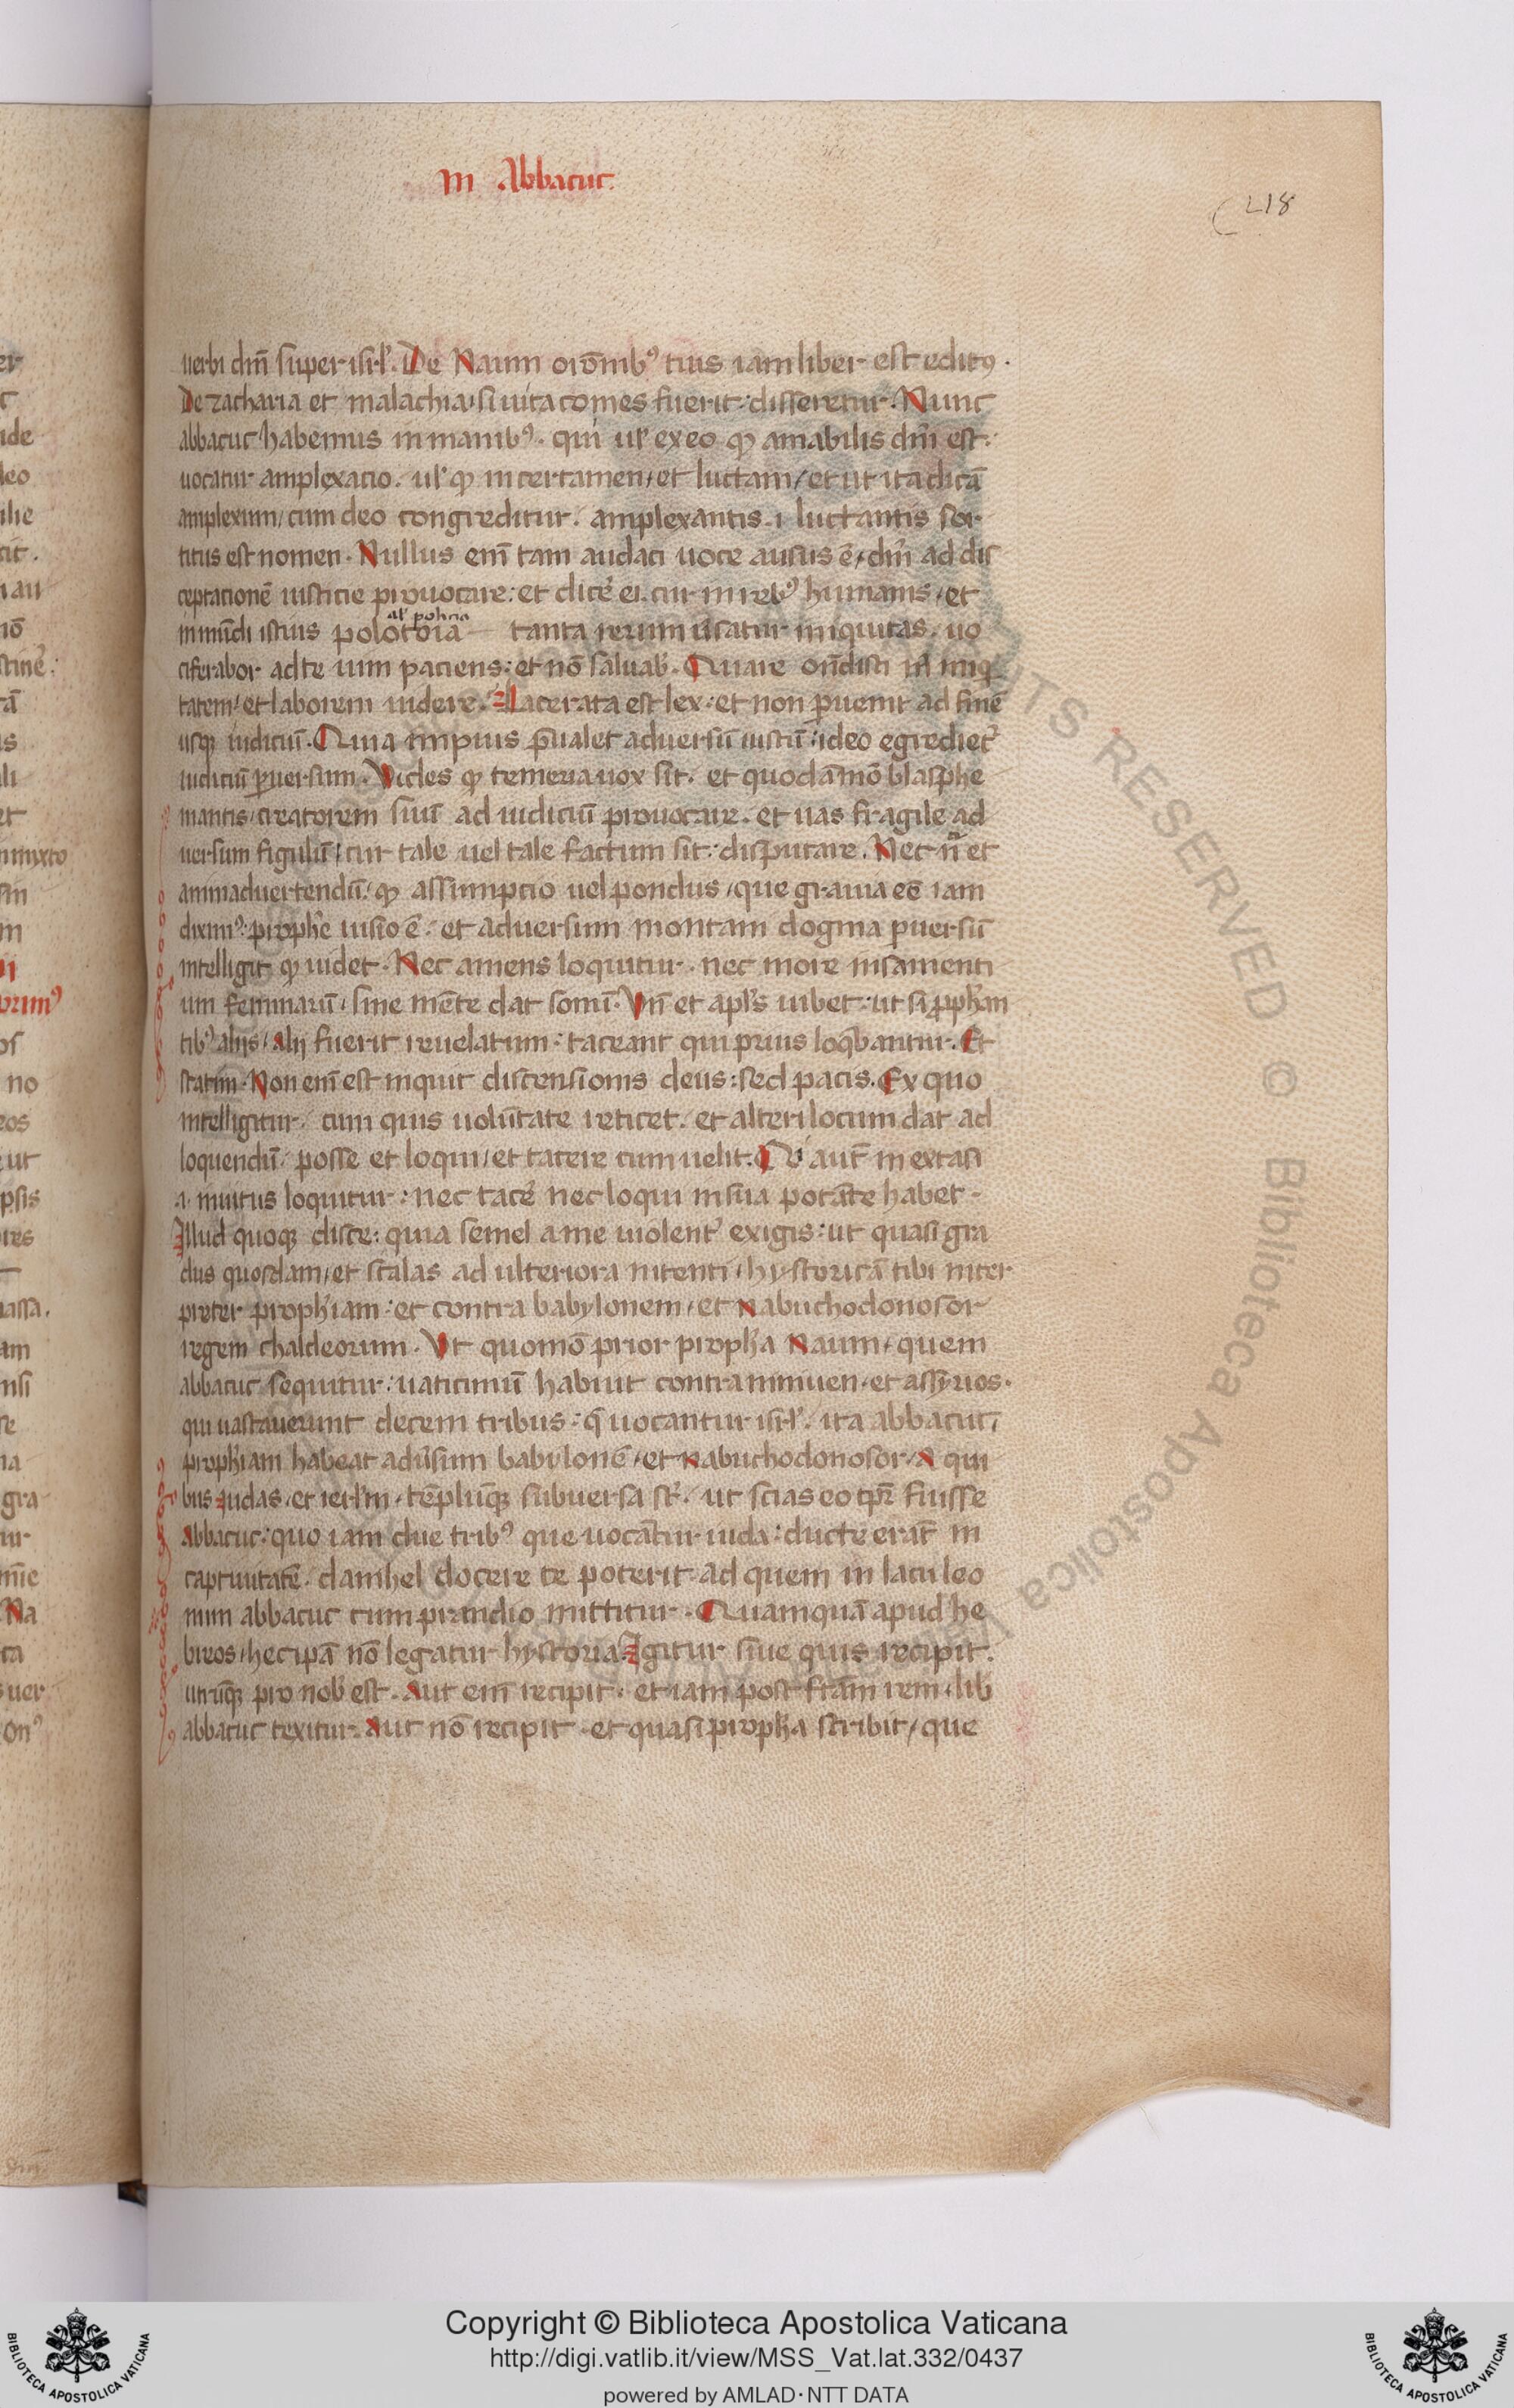 in Abbacuc.
218
uerbi dñi super isrl'. De Naum oronib⁹ tuis iam liber est edit⁹.
De zacharia et malachia, si uita comes fuerit: disseretur. Nunc
abbacuc habemus in manib⁹. qui ul' ex eo qp amabilis dñi est:
uocatur amplexacio. ul' qp in certamen, et luctam, et ut ita dicā
amplexum, cum deo congreditur. amplexantis .i. luctantis sor
titus est nomen. Nullus em̄ tam audaci uoce ausus ē, dm̄ ad dis
ceptacionē iusticie prouocare: et dicē ei. cur in reb⁹ humanis, et
al' politia
in mūdi istius polotoia tanta rerum ūsatur iniquitas. uo
ciferabor ad te uim paciens: et nō saluab'. Quare on̄disti m̄ iniq
tatem, et laborem uidere. Lacerata est lex: et non puenit ad finē
usq; iudiciū. Quia impius p̄ualet aduersū iustū: ideo egrediet'
iudiciū puersum. Vides qp temeraria uox sit. et quodāmō blasphe
mantis, creatorem suū ad iudiciū prouocare. et uas fragile ad
uersum figulū, cur tale uel tale factum sit: disputare. Nec n̄ et
animaduertendū, qp assumptio uel pondus, que grauia eē iam
dixim⁹: prophe uisio ē. et aduersum montani dogma puersū
intelligit qp uidet. Nec amens loquitur. nec more insanienti
um feminarū, sine mēte dat sonū. Vn̄ et apl's iubet: ut si pphan
tib⁹ alijs, alij fuerit reuelatum: taceant qui prius loqbantur. Et
statim. Non em̄ est inquit discensionis deus: sed pacis. Ex quo
intelligitur, cum quis uolūtate reticet. et alteri locum dat ad
loquendū, posse et loqui, et tacere cum uelit. Qi aut̄ in extasi
.i. inuitus loquitur: nec tacē nec loqui in sua potāte habet.
Illud quoq; disce: quia semel a me uiolent' exigis: ut quasi gra
dus quosdam, et scalas ad ulteriora nitenti, hystoricā tibi inter
preter prophiam: et contra babylonem, et Nabuchodonosor
regem chaldeorum. Vt quomō prior propha Naum, quem
abbacuc sequitur: uaticiniū habuit contra niniuen, et assyrios.
qui uastauerunt decem tribus: q̄ uocantur isrl'. ita abbacuc,
prophiam habeat adūsum babilonē, et Nabuchodonosor, A qui
bus iudas, et ierl'm, tēplūq; subuersa st̄. ut scias eo tpr̄ fuisse
Abbacuc: quo iam due trib⁹ que uocātur iuda: ducte erāt in
captiuitatē. danihel docere te poterit. ad quem in lacu leo
num abbacuc cum prandio mittitur. Quamquā apud he
breos, hec ipā nō legatur hystoria. Igitur siue quis recipit.
utrūq; pro nob' est. Aut em̄ recipit. et iam post ftām rem, lib
abbacuc texitur. Aut nō recipit. et quasi propha scribit, que
ALL RIGHTS RESERVED © Biblioteca Apostolica Vaticana
Copyright © Biblioteca Apostolica Vaticana
http://digi.vatlib.it/view/MSS_Vat.lat.332/0437
powered by AMLAD·NTT DATA
BIBLIOTECA APOSTOLICA VATICANA
BIBLIOTECA APOSTOLICA VATICANA